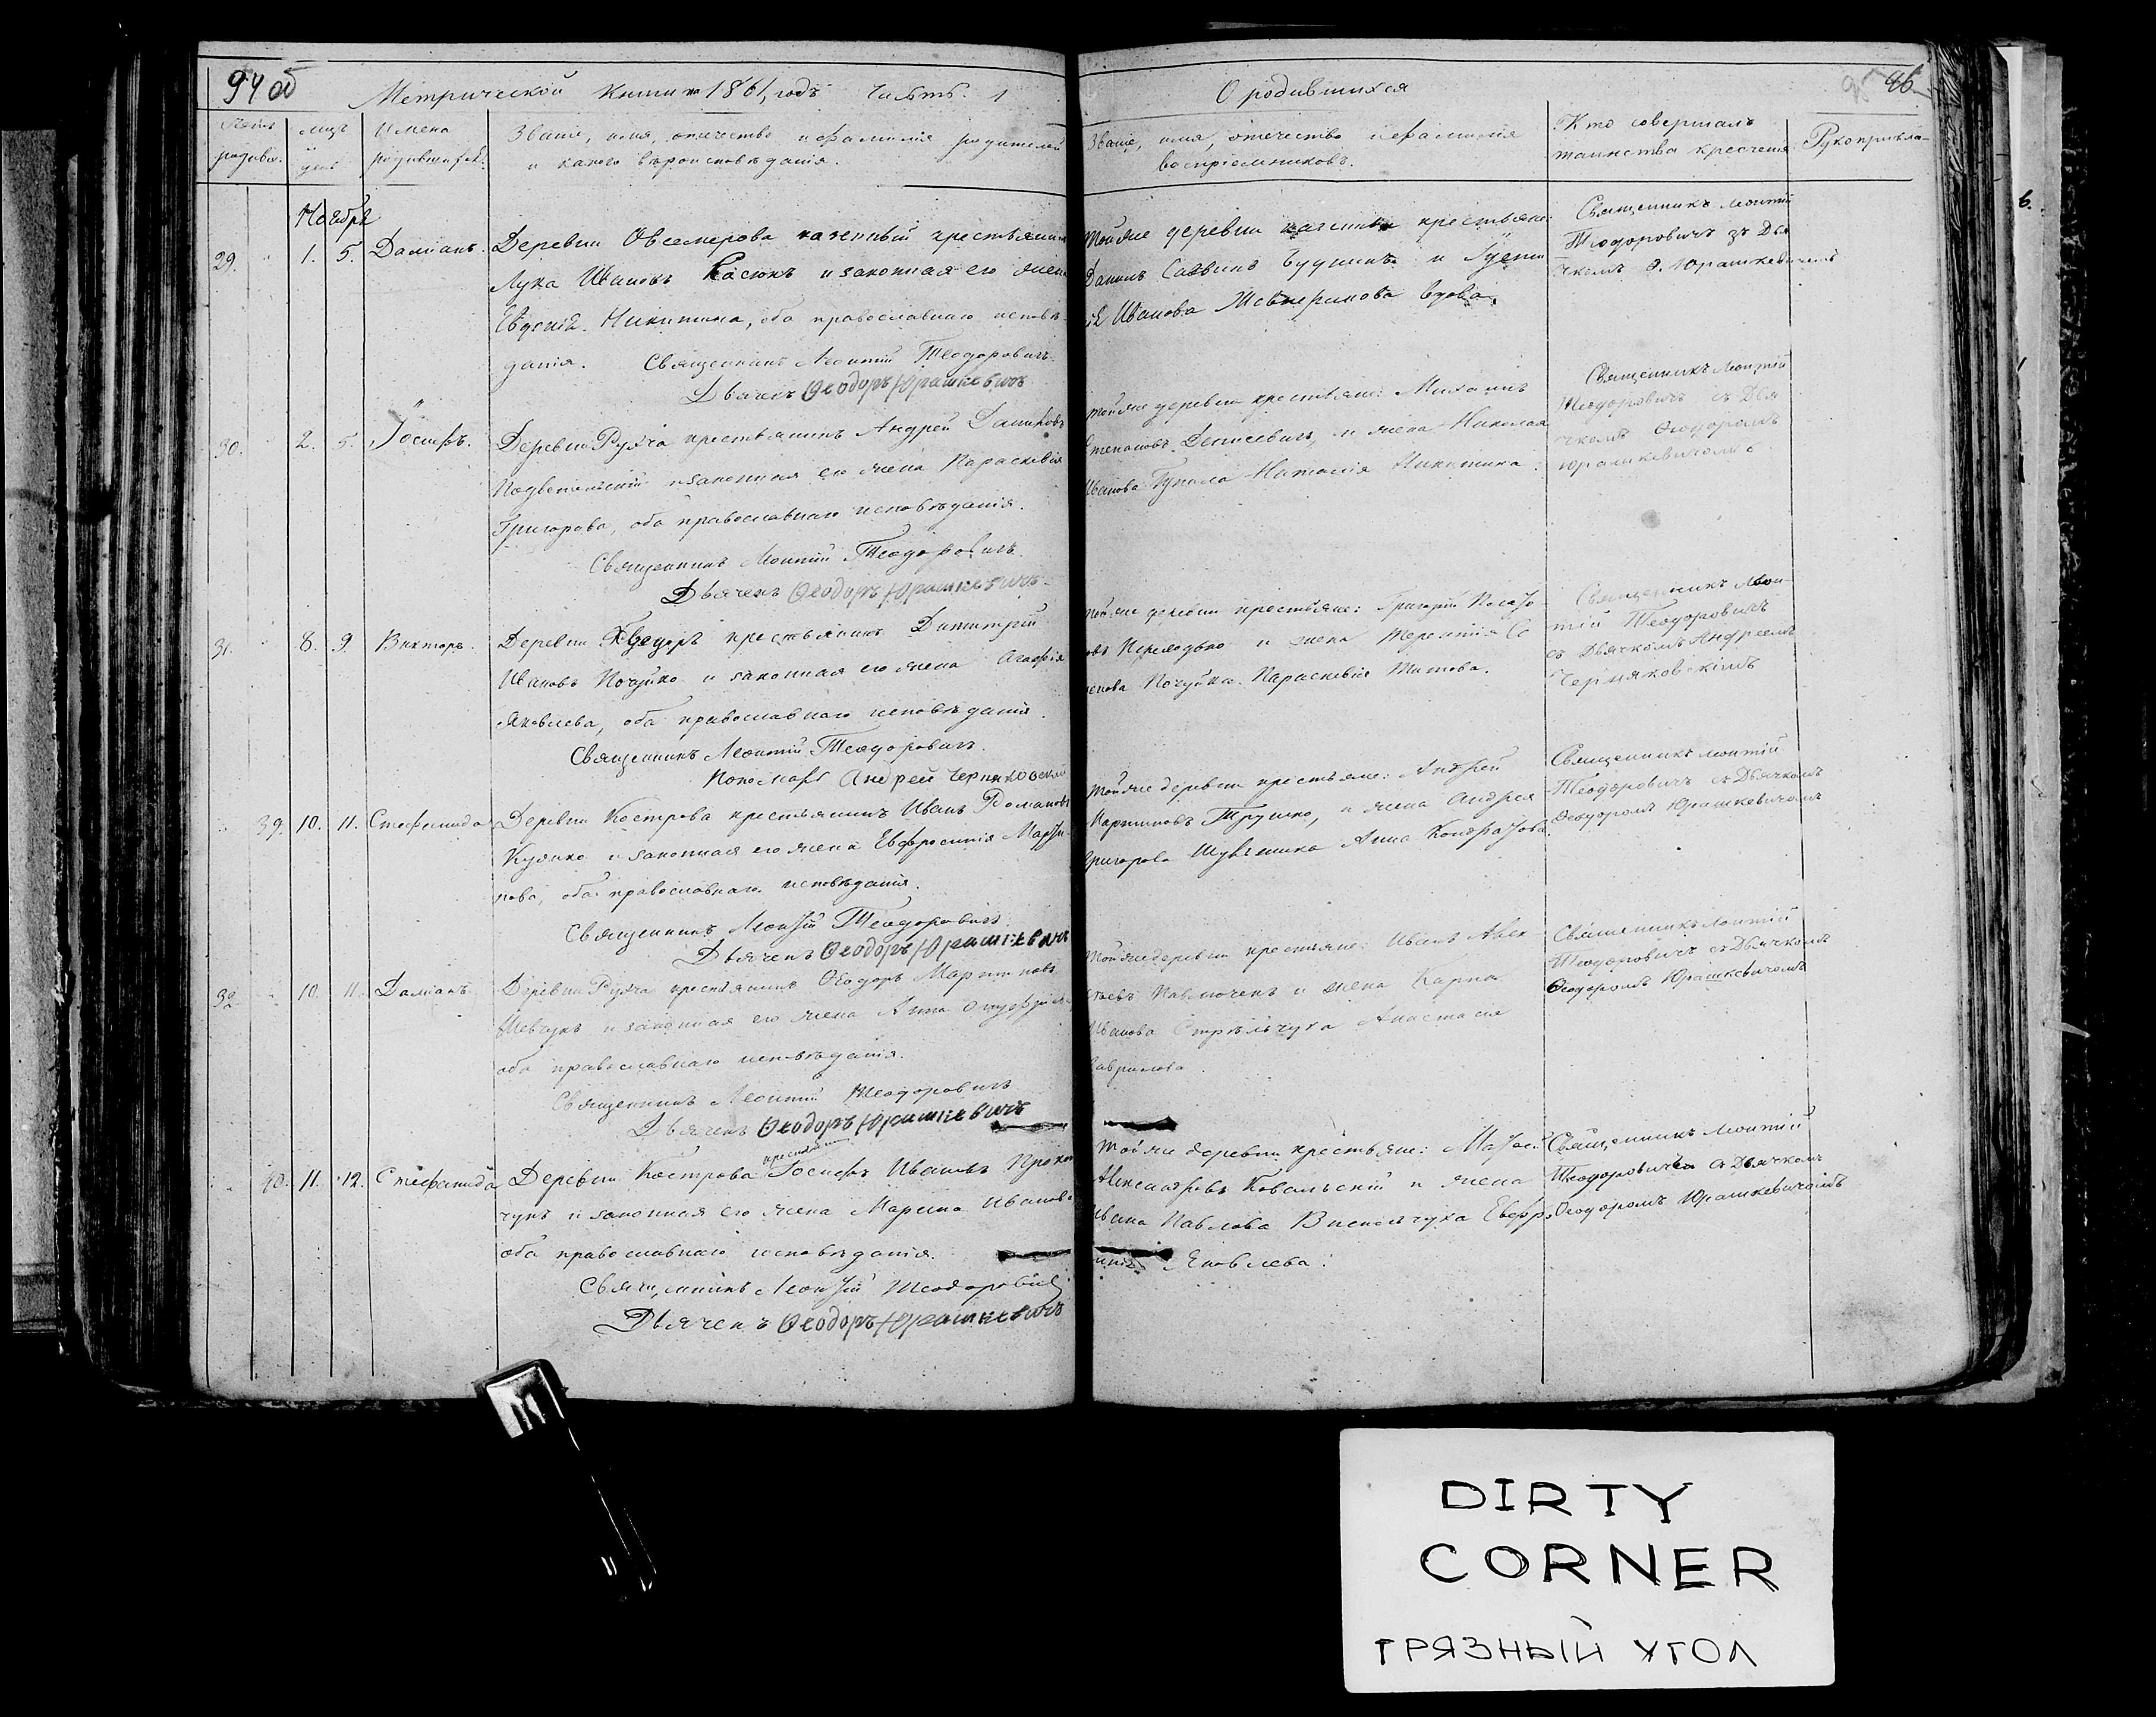 94 об
Метрической книги на 1861, годъ Часть. 1
О родившихся
96
родивш.
день
Имена родившихся.
Званіе, имя, отечество и фамилія родителей и какого вѣроисповѣданія.
Званіе, имя, отечество и фамилія воспріемниковъ.
Кто совершалъ таинства крещенія
Рукоприкла-
Ноября
29. 1. 5. Даміанъ.
Деревни казенный крестьянинъ
Лука Ивановъ и законная его жена
Никитина, оба православнаго исповѣ-
данія. Священникъ Леонтій Теодоровичъ.
Дьячекъ Ѳеодоръ Юрашкевичъ
Тойже деревни крестьяне:
Иванова вдова.
Священникъ Леонтій
Теодоровичъ зъ Дья
чкомъ Ѳ. Юрашкевичемъ
30. 2. 5. Іосифъ.
Деревни Рудча крестьянинъ Андрей
и законная его жена Параскевія
Григорова, оба православнаго исповѣданія.
Священникъ Леонтій Теодоровичъ.
Дьячекъ Ѳеодоръ Юрашкевичъ.
тойже деревни крестьяне: Михаилъ
Степановъ Денисевичъ, и жена Николая
Иванова Наталія Никитина.
Священникъ Леонтій
Теодоровичъ съ Дья
чкомъ Ѳеодоромъ
Юрашкевичомъ
31. 8. 9. Викторъ.
Деревни крестьянинъ Димитрій
Ивановъ Почуйко и законная его жена Агафія
Яковлева, оба православнаго исповѣданія.
Священникъ Леонтій Теодоровичъ.
Пономарь Андрей Черняковскій
тойже деревни крестьяне: Григорій
и жена Терентія
Почуйка Параскевія Титова.
Священникъ Леон-
тій Теодоровичъ
съ Дьячкомъ Андреемъ
Черняковскимъ
39. 10. 11. Стефанида
Деревни Кострова крестьянинъ Иванъ Романовъ
и законная его жена Евфросинія Марти-
нова, оба православнаго исповѣданія.
Священникъ Леонтій Теодоровичъ
Дьячекъ Ѳеодоръ Юрашкевичъ
Тойже деревни крестьяне: Андрей
Мартиновъ и жена Андрея
Григорова Анна Кондратова.
Священникъ Леонтій
Теодоровичъ съ Дьячкомъ
Ѳеодоромъ Юрашкевичомъ
32. 10. 11. Даміанъ.
Деревни Рудча крестьянинъ Ѳеодоръ Мартиновъ
Шевчукъ и законная его жена Анна
оба православнаго исповѣданія.
Священникъ Леонтій Теодоровичъ
Дьячекъ Ѳеодоръ Юрашкевичъ
Тойже деревни крестьяне: Иванъ
Павлюченъ и жена Карпа
Иванова Стрѣльчука Анастасія
Гаврилова.
Священникъ Леонтій
Теодоровичъ съ Дьячкомъ
Ѳеодоромъ Юрашкевичомъ
40. 11. 12. Стефанида
крестьянинъ
Деревни Кострова Іосифъ Ивановъ Прокоп-
чукъ и законная его жена Марина Иванова
оба православнаго исповѣданія.
Священникъ Леонтій Теодоровичъ
Дьячекъ Ѳеодоръ Юрашкевичъ
Тойже деревни крестьяне: Матвей
Александровъ Ковальскій и жена
Ивана Павлова Евфро-
синія Яковлева.
Священникъ Леонтій
Теодоровичъ съ Дьячкомъ
Ѳеодоромъ Юрашкевичомъ
6.
DIRTY
CORNER
ГРЯЗНЫЙ УГОЛ